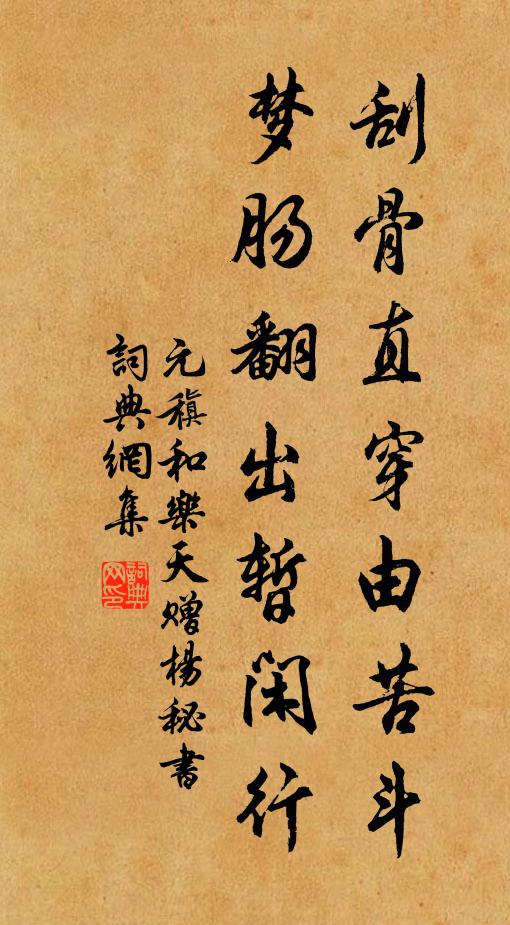 刮骨直穿由苦斗
梦肠翻出暂闲行
元稹和樂天赠楊秘書
詞典網集
詞典网印